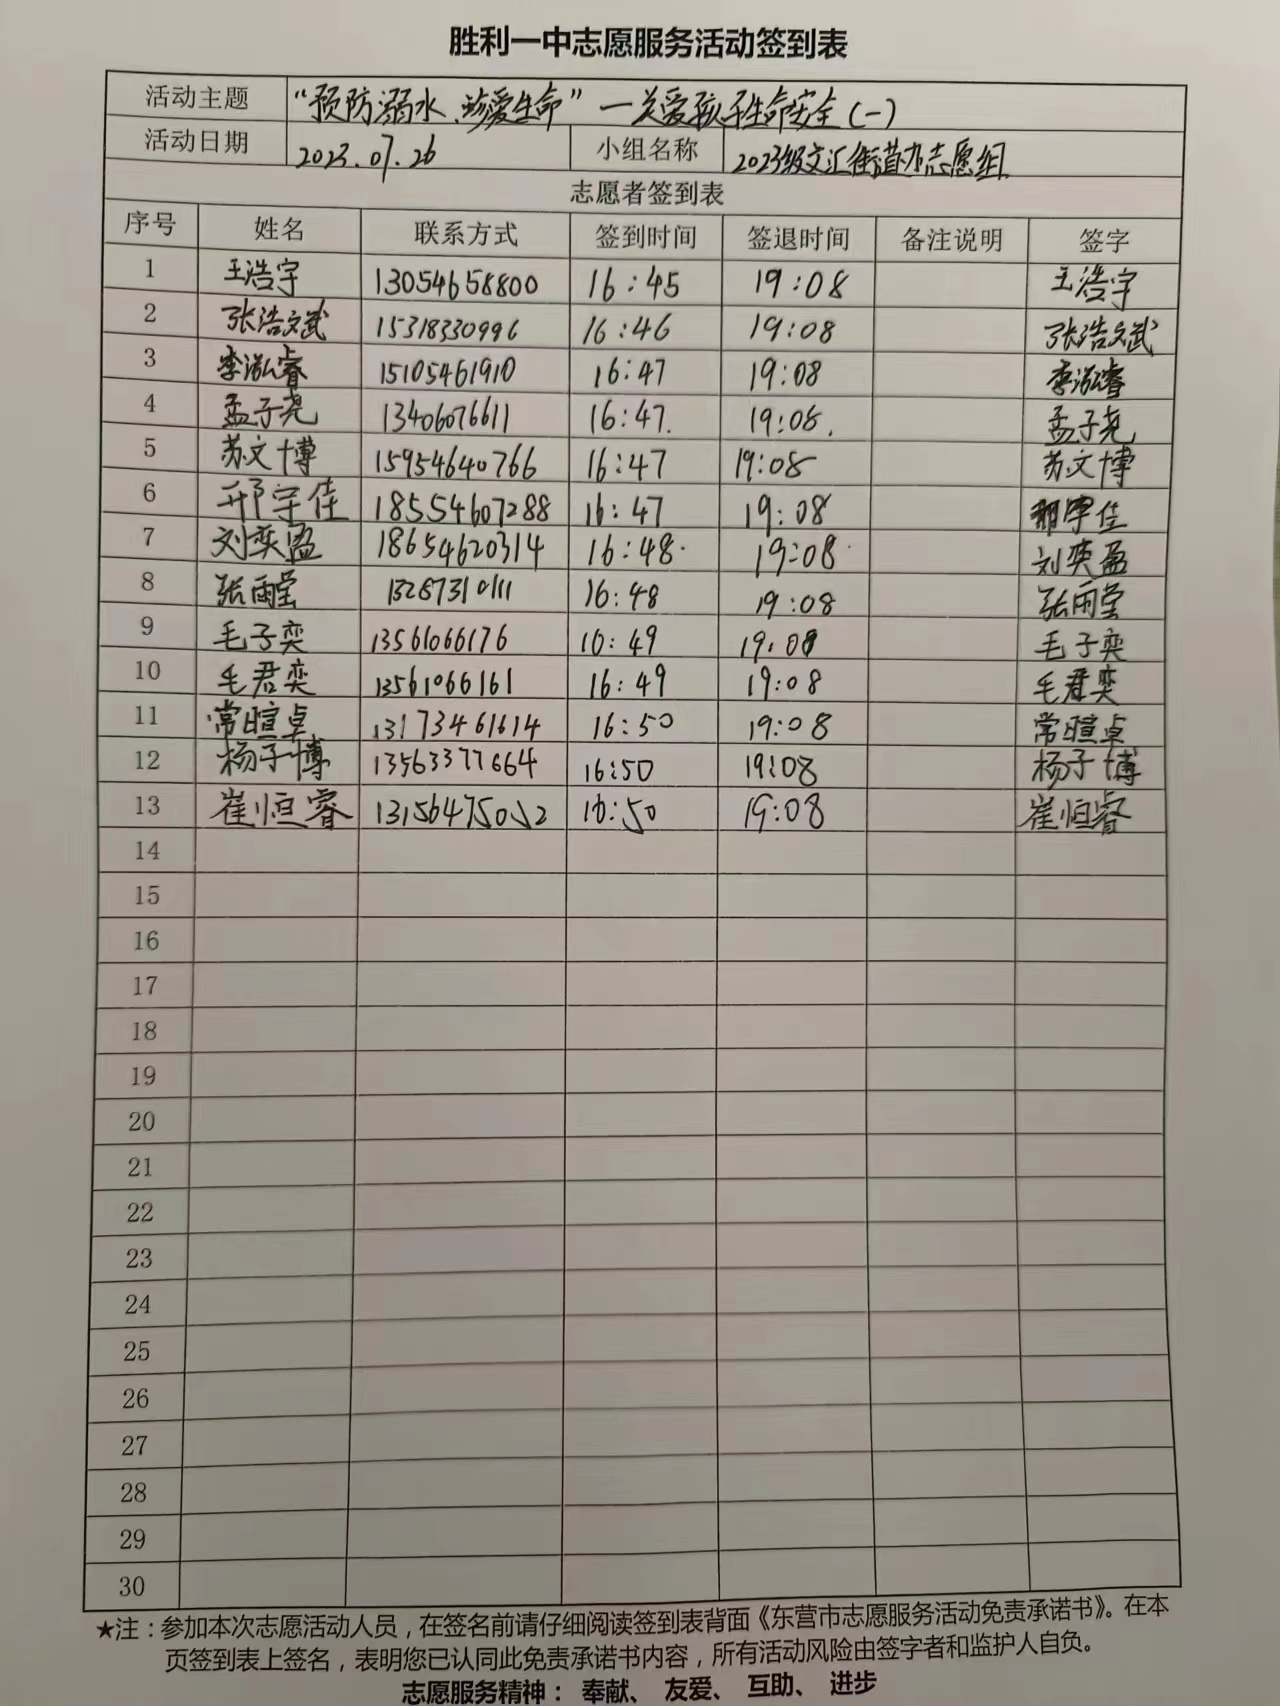 胜利一中志愿服务活动签到表
活动主题 “预防溺水、珍爱生命”一关爱孩子生命安全(一)
活动日期 2023.07.26 小组名称 2023级文汇街道办志愿组
志愿者签到表
序号 姓名 联系方式 签到时间 签退时间 备注说明 签字
1 王浩宇 13054658800 16:45 19:08 王浩宇
2 张浩文武 15318330996 16:46 19:08 张浩文武
3 李泓睿 15105461910 16:47 19:08 李泓睿
4 孟子尧 13406076611 16:47. 19:08. 孟子尧
5 苏文博 15954640766 16:47 19:08 苏文博
6 邢宇佳 18554607288 16:47 19:08 邢宇佳
7 刘奕盈 18654620314 16:48 19:08 刘奕盈
8 张雨莹 13287310111 16:48 19:08 张雨莹
9 毛子奕 13561066176 16:49 19:08 毛子奕
10 毛君奕 13561066161 16:49 19:08 毛君奕
11 常暄卓 13173461614 16:50 19:08 常暄卓
12 杨子博 13563377664 16:50 19:08 杨子博
13 崔恒睿 13156475052 16:50 19:08 崔恒睿
14
15
16
17
18
19
20
21
22
23
24
25
26
27
28
29
30
★注：参加本次志愿活动人员，在签名前请仔细阅读签到表背面《东营市志愿服务活动免责承诺书》。在本
页签到表上签名，表明您已认同此免责承诺书内容，所有活动风险由签字者和监护人自负。
志愿服务精神： 奉献、 友爱、 互助、 进步